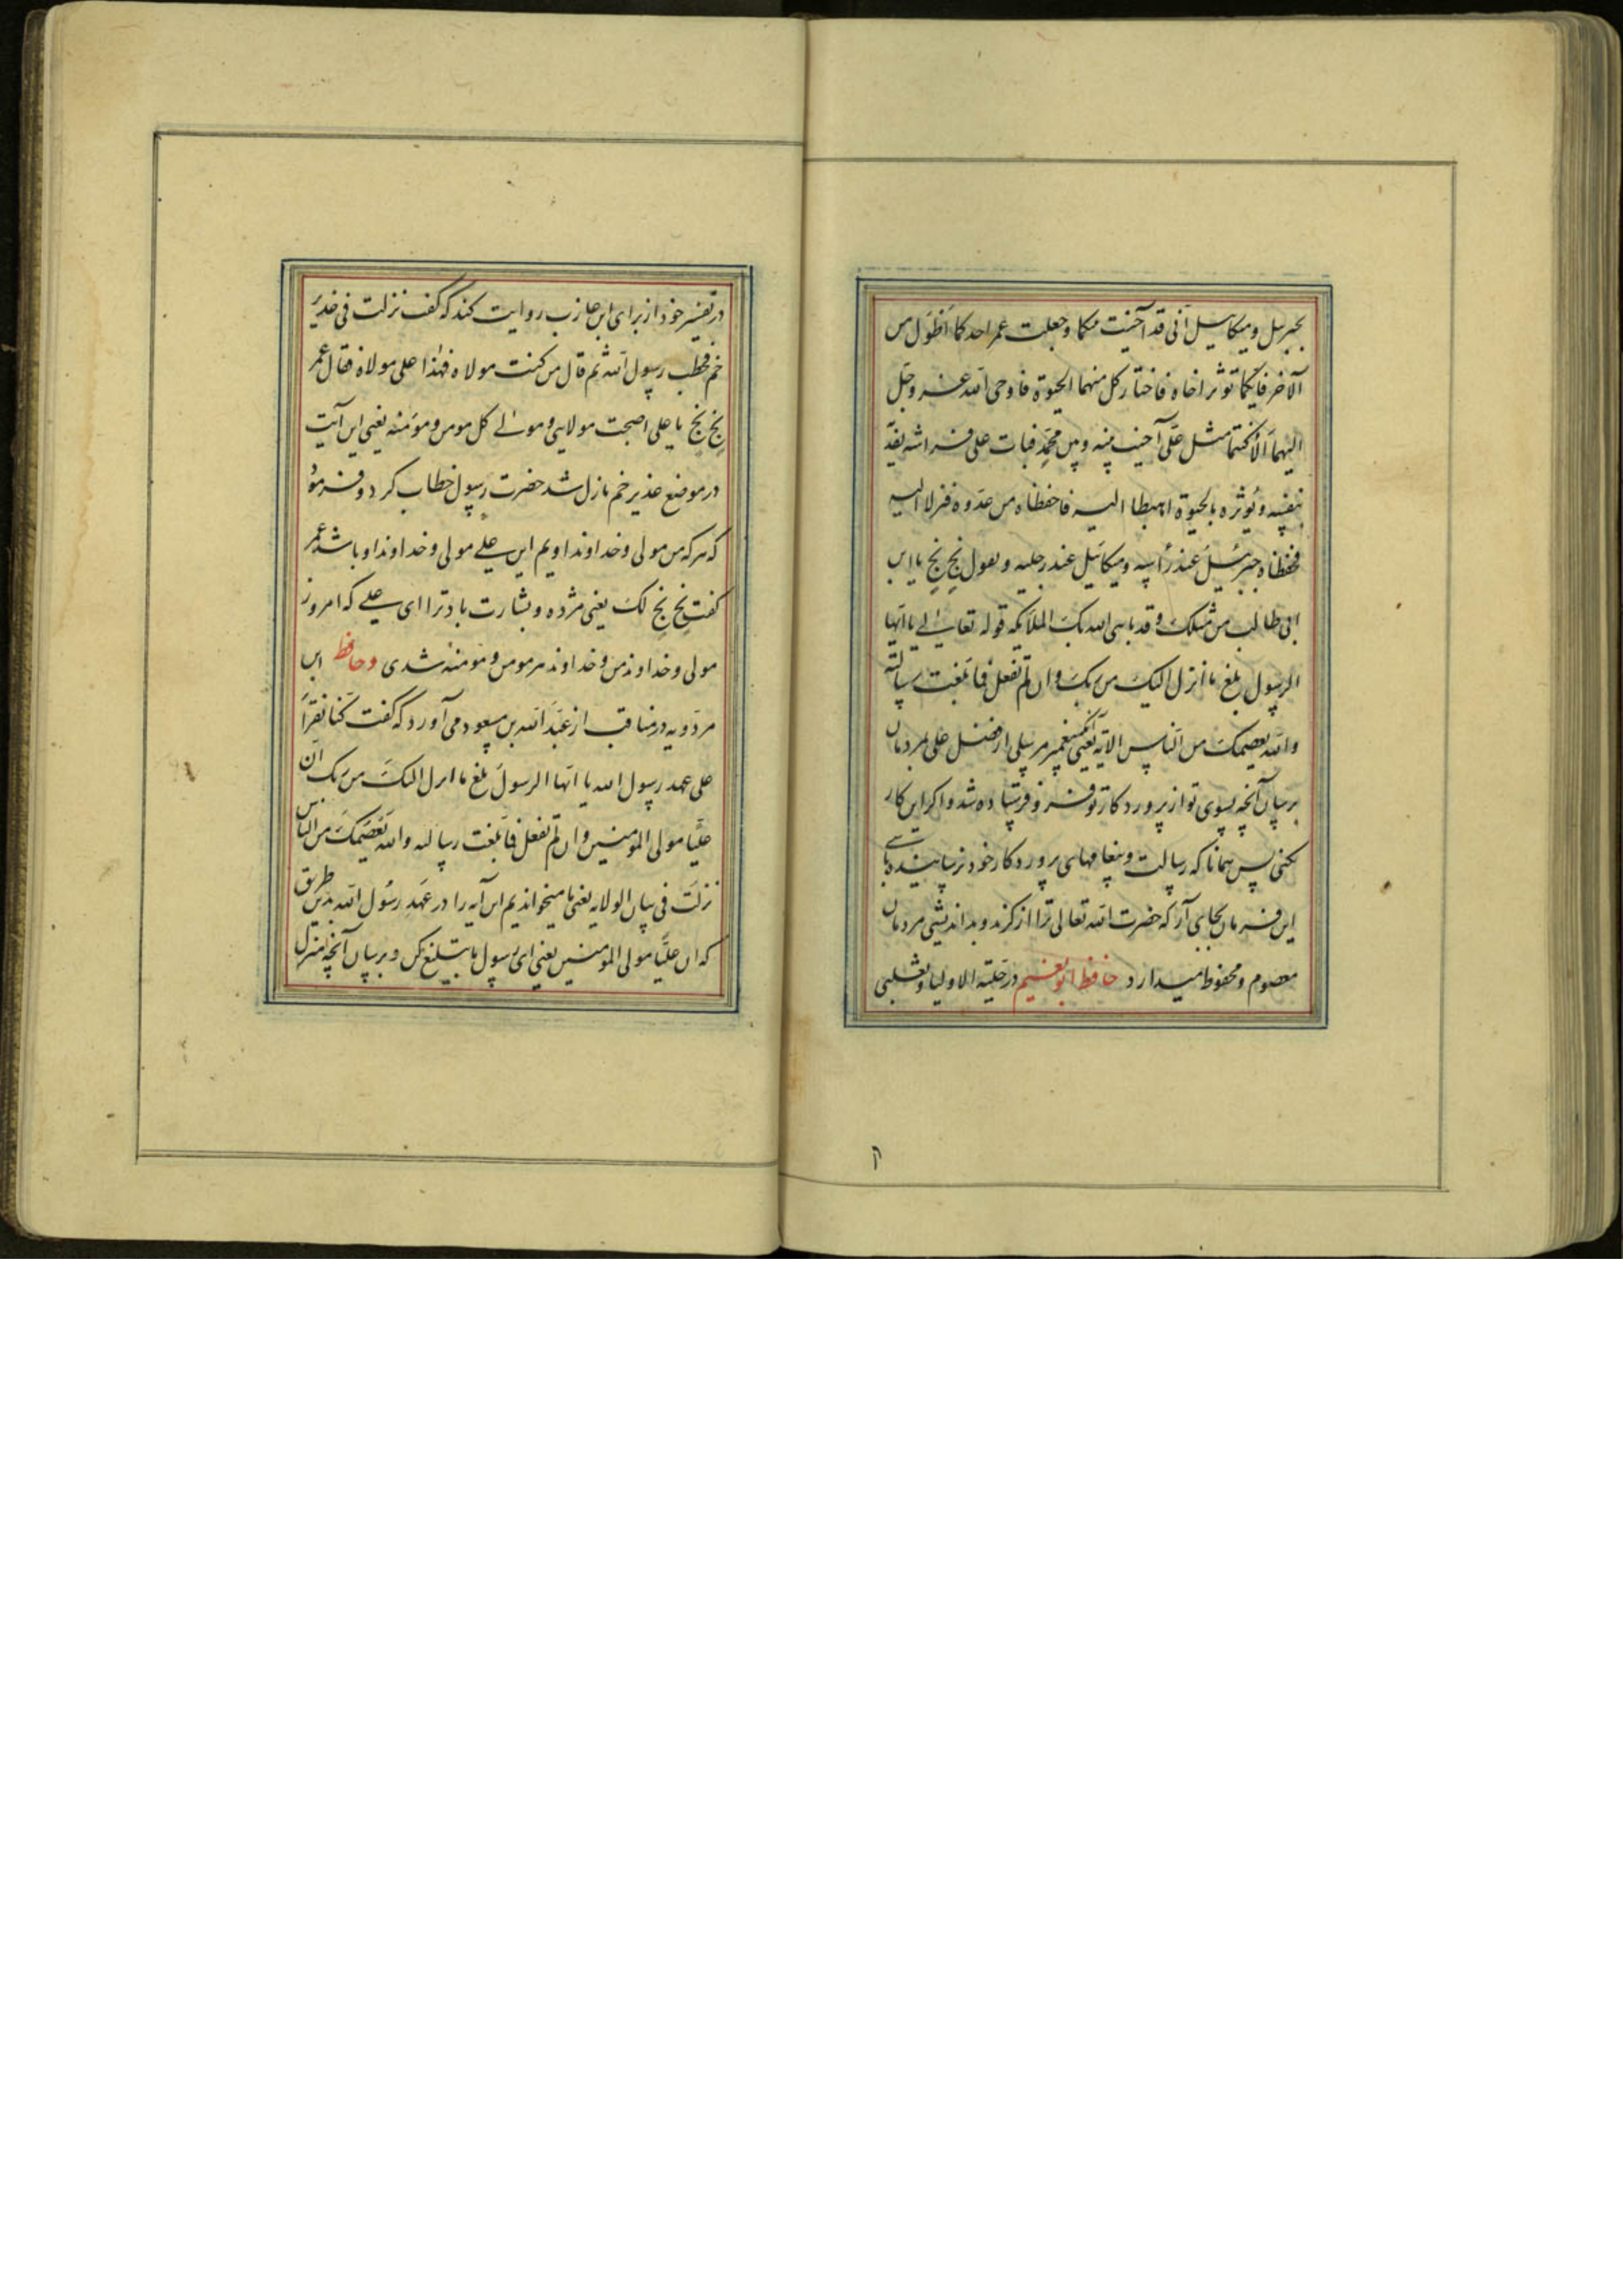 بجبریل و میکاییل انی قد آخیت بینکما و جعلت عمر احدکما اطول من
الآخر فایکما توثر اخاه فاختار کل منهما الحیوة فاوحی الله عز و جل
الیهما الا کنتما مثل علی آخیت بینه و بین محمد فبات علی فراشه یفدّ
بنفسه و یؤثره بالحیوة اهبطا الیه فاحفظاه من عدوه فنزلا الیه
فحفظاه جبرئیل عند رأسه و میکائیل عند رجلیه و یقول بخ بخ یا ابن
ابی طالب من مثلک و قد باهی الله بک الملائکه قوله تعالی یا ایها
الرسول بلغ ما انزل الیک من ربک و ان لم تفعل فما بلغت رسالته
والله یعصمک من الناس الآیه یعنی ای پیغمبر مرسل از فضل علی بمردمان
برسان آنچه بسوی تو از پروردکار تو فرو فرستاده شد و اکر این کار
نکنی پس همانا که رسالت و پیغامهای پروردکار خود نرسانیده باشی
این فرمان بجای آر که حضرت الله تعالی ترا از کزند و بداندیشی مردمان
معصوم و محفوظ میدارد حافظ ابو نعیم در حلیة الاولیا و ثعلبی
۲
در تفسیر خود از برای ابن عازب روایت کند که کفت نزلت فی غدیر
خم فخطب رسول الله ثم قال من کنت مولاه فهذا علی مولاه فقال عمر
بخ بخ یا علی اصبحت مولایی و مولی کل مومن و مؤمنه یعنی این آیت
در موضع غدیر خم نازل شد حضرت رسول خطاب کرد و فرمود
که هر که من مولی و خداوند اویم این علی مولی و خداوند او باشد عمر
کفت بخ بخ لک یعنی مژده و بشارت باد ترا ای علی که امروز
مولی و خداوند من و خداوند هر مومن و مؤمنه شدی و حافظ ابن
مردویه در مناقب از عبد الله بن مسعود می آورد که کفت کنا نقرأ
علی عهد رسول الله یا ایها الرسول بلغ ما انزل الیک من ربک انّ
علیّا مولی المومنین و ان لم تفعل فما بلغت رسالته والله یعصمک من الناس
نزلت فی بیان الولایه یعنی ما میخواندیم این آیه را در عهد رسول الله بدین طریق
که ان علیّا مولی المومنین یعنی ای رسول ما تبلیغ کن و برسان آنچه منزل